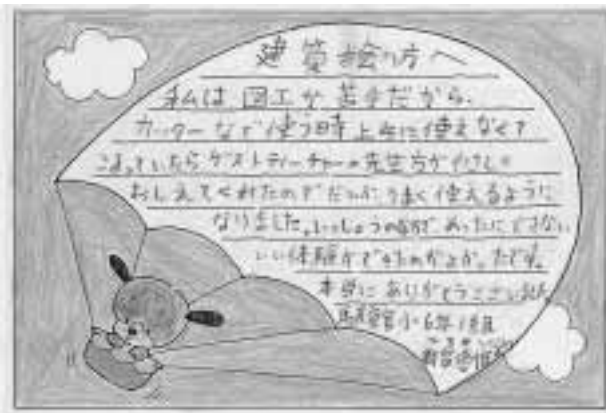 建築士会の方へ
私は図工が苦手だから、
カッターなど使う時上手に使えなくて
こまっていたらゲストティーチャーの先生方がやさしく
おしえてくれたのでだいぶうまく使えるように
なりました。いっしょうの中で めったにできない
いい体験ができたのがよかったです。
本当にありがとうございました
小6年1組